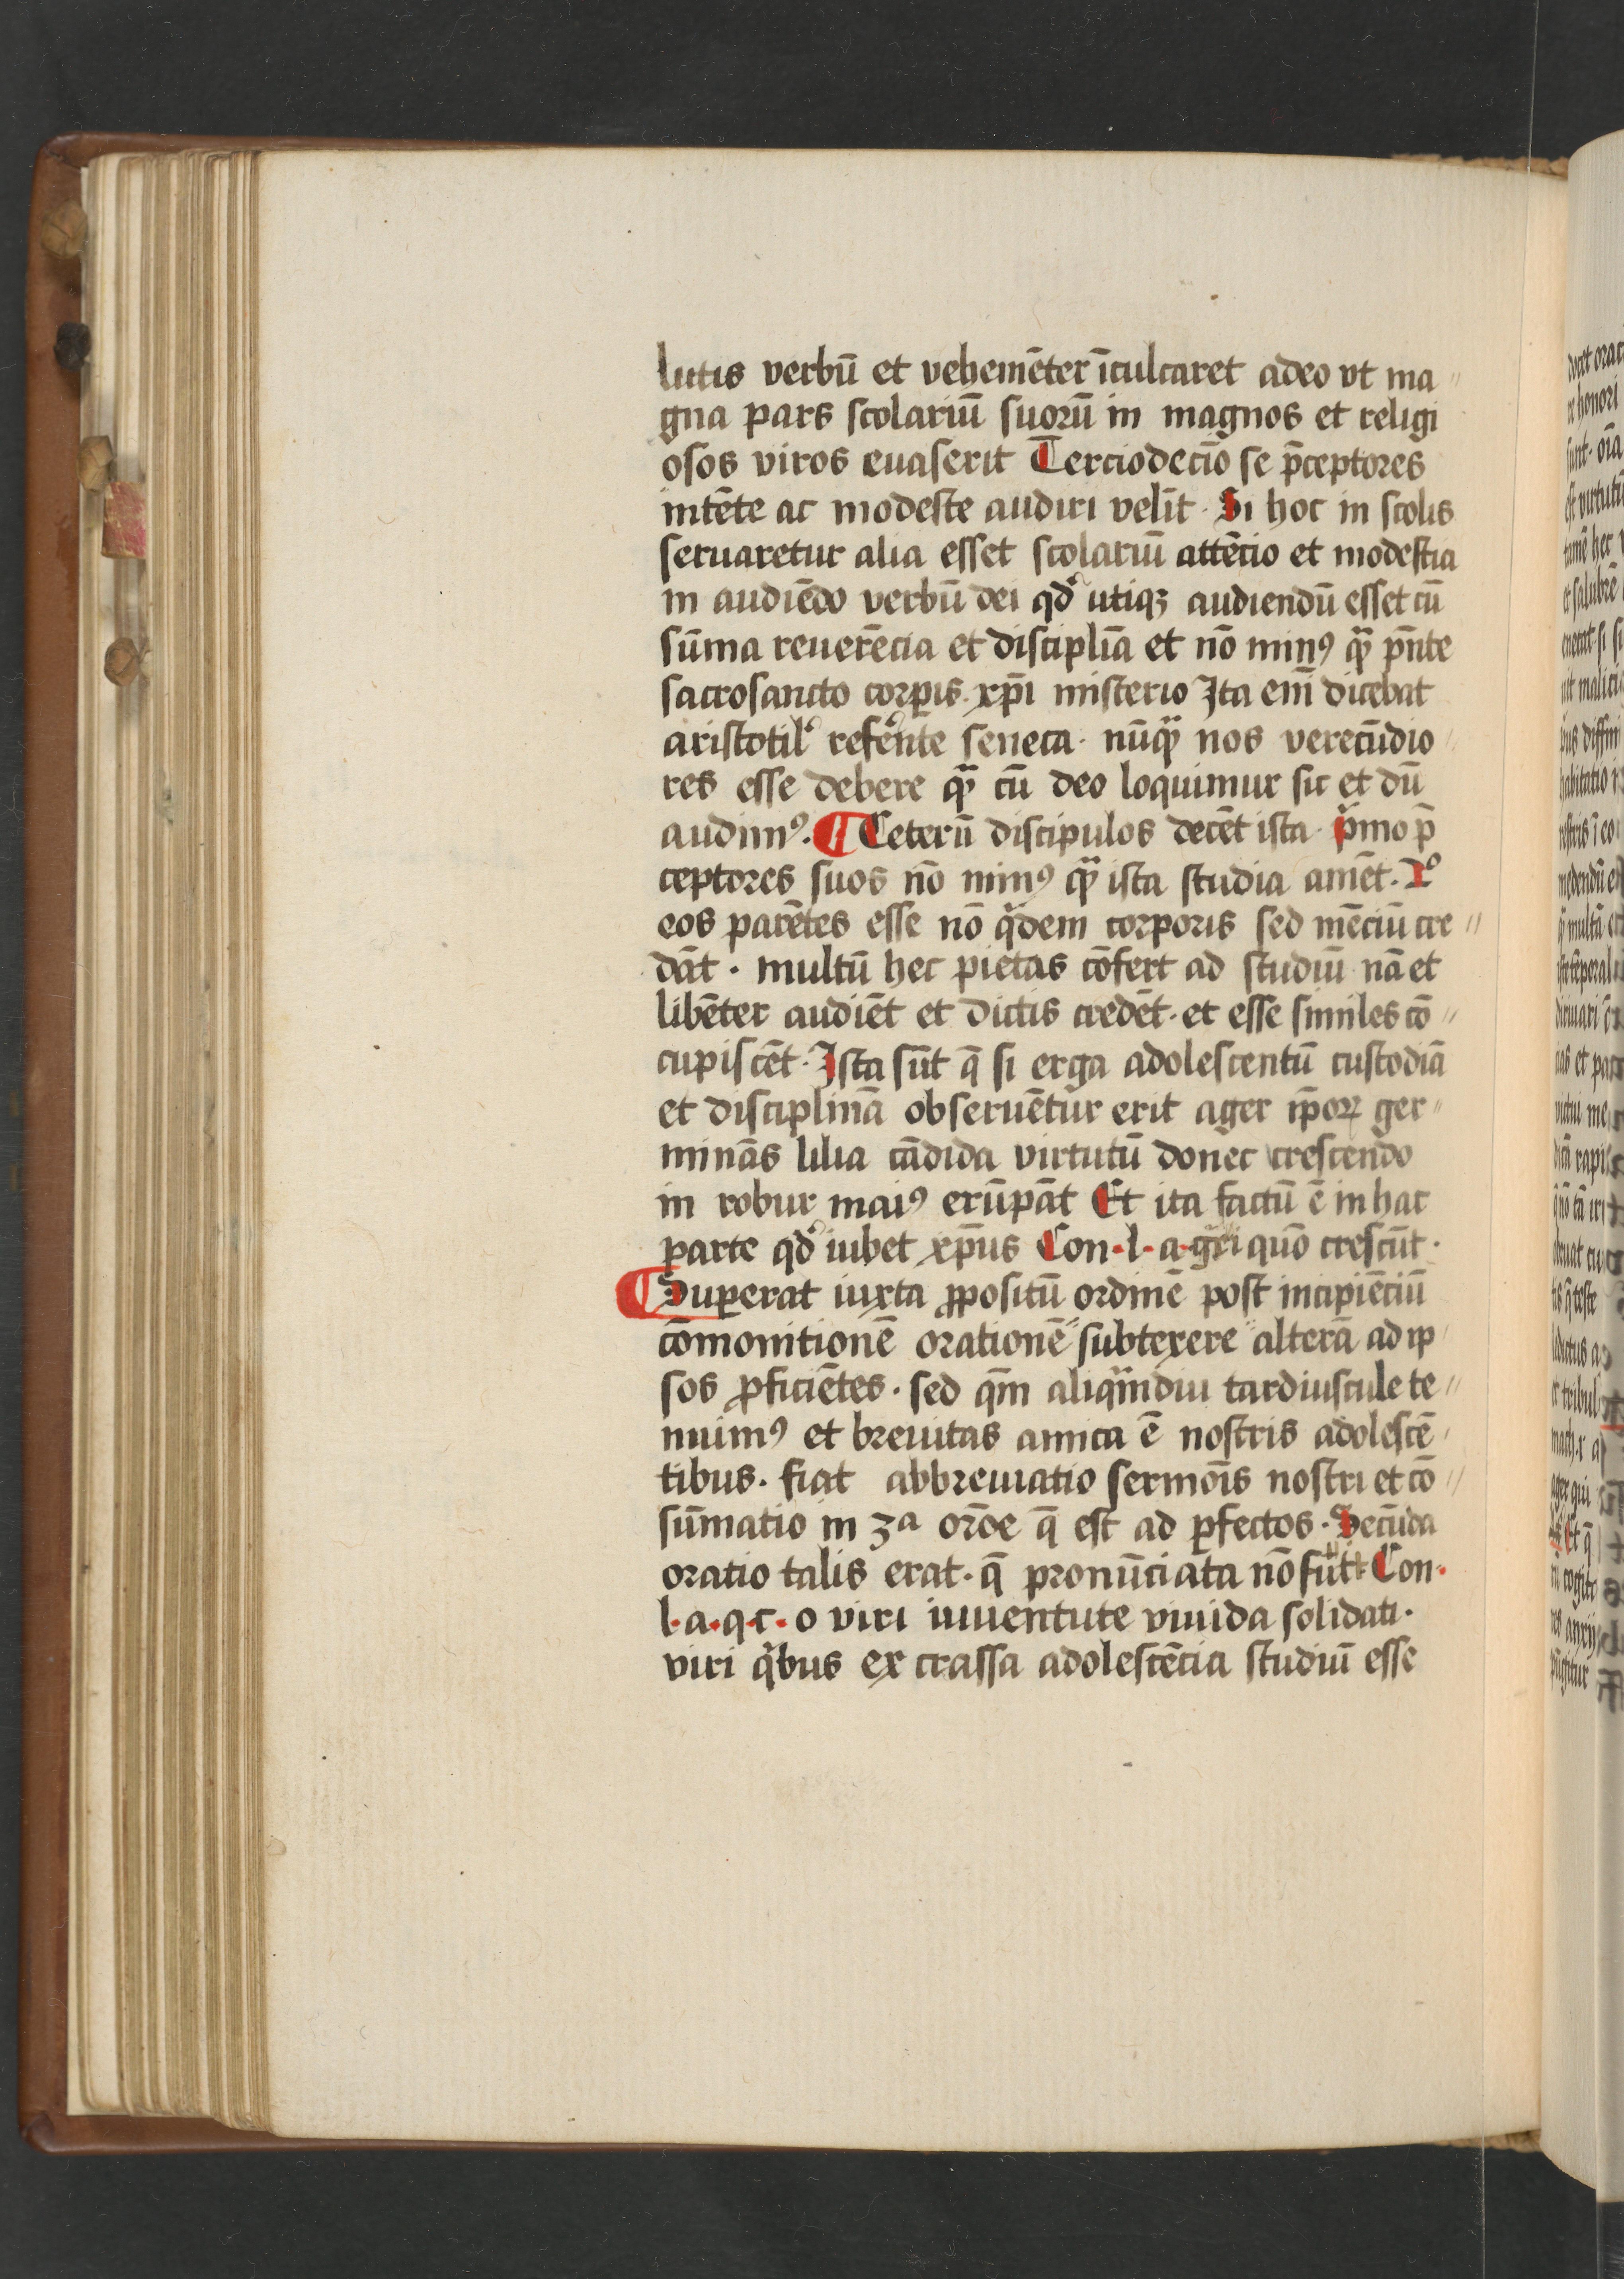 lutis verbū et vehemēter īculcaret adeo vt ma〃
gna pars scolariū suorū in magnos et religi
osos viros euaserit Terciodecīo se p̄ceptores
intēte ac modeste audiri velīt · Si hoc in scolis
seruaretur alia esset scolariū attēcio et modestia
in audiēdo verbū dei qd' utiqȝ audiendū esset cū
sūma reuerēcia et disciplīa et nō minꝰ qꝫ̄ pn̄te
sacrosancto corꝑis xp̄i misterio Ita enī dicebat
aristotil' refer̄nte seneca · nūqꝫ̄ nos verecūdio〃
res esse debere qꝫ̄ cū deo loquimur sic et dū
audimꝰ. ¶ Ceterū discipulos decēt ista · pͥmo p̄
ceptores suos nō minꝰ qꝫ̄ ista studia amēt. 2º
eos parētes esse nō qͥdem corporis sed mēciū cre〃
dāt · multū hec pietas cōfert ad studiū nā et
libēter audiēt et dictis credēt · et esse similes cō〃
cupiscēt · Ista sūt q̄ si erga adolescentū custodiā
et disciplinā obseruētur erit ager ip̄oꝝ ger〃
minās lilia cādida virtutū donec crescendo
in robur maiꝰ erūpāt Et ita factū ē in hac
parte qd' iubet xp̄us Con · l · a · gͣi quō crescūt ·
¶ Suꝑerat iuxta ꝓpositū ordinē post incipiēciū
cōmonitionē orationē 〃 subtexere 〃 alterā ad ip〃
sos ꝓficiētes · sed qm̄ aliqͣmdiu tardiuscule te〃
nuimꝰ et breuitas amica ē nostris adolescē〃
tibus · fiat abbreuiatio sermōis nostri et cō〃
sūmatio in 3ª orōe q̄ est ad ꝑfectos · Secūda
oratio talis erat · q̄ pronūciata nō fuīt Con ·
l · a · q · c · o viri iuuentute viuida solidati ·
viri qͥbus ex crassa adolescēcia studiū esse